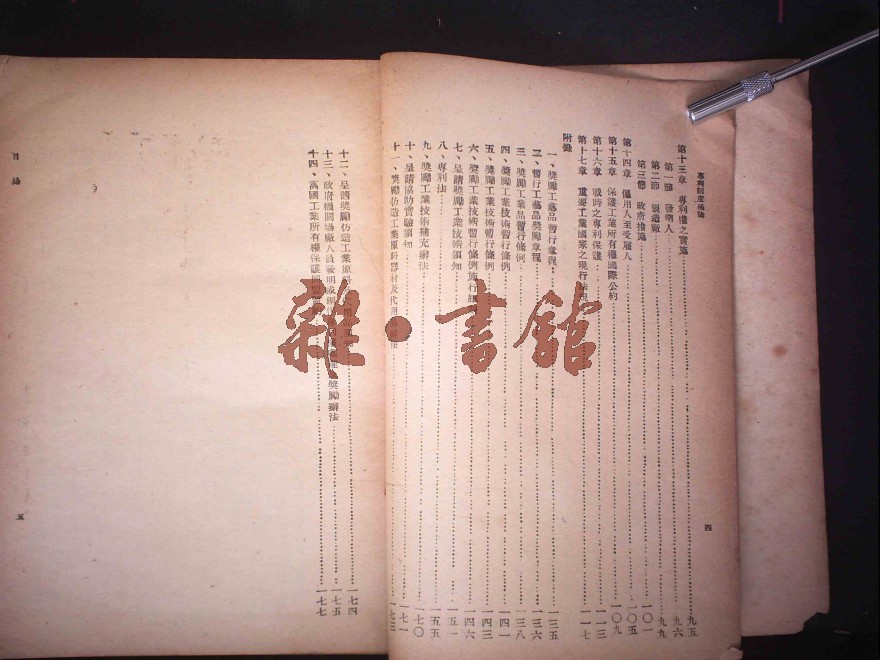 專利制度概論
第十三章 專利權之實施……九五
第一節 發明人……九六
第二節 製造廠……九九
第三節 政府措施……一〇一
第十四章 僱用人至受雇人……一〇五
第十五章 保護工業所有權國際公約……一〇九
第十六章 戰時之專利保護……一一三
第十七章 重要工業國家之現行法規……一一七
附錄
一、獎勵工藝品暫行章程……一三五
二、暫行工藝品獎勵章程……一三六
三、獎勵工業品暫行條例……一三八
四、獎勵工業技術暫行條例……一四一
五、獎勵工業技術暫行條例……一四三
六、獎勵工業技術暫行條例施行細……一四六
七、呈請獎勵工業技術須知……一五一
八、專利法……一五五
九、獎勵工業技術補充辦法……一七〇
十、呈請協助實驗須知……一七一
十一、獎勵仿造工業原料器材及代用品辦法……一七三
四
目錄
十二、呈請獎勵仿造工業原料……一七四
十三、政府機關場廠人員發明或……獎勵辦法……一七五
十四、萬國工業所有權保護同盟……一七七
五
雜·書館